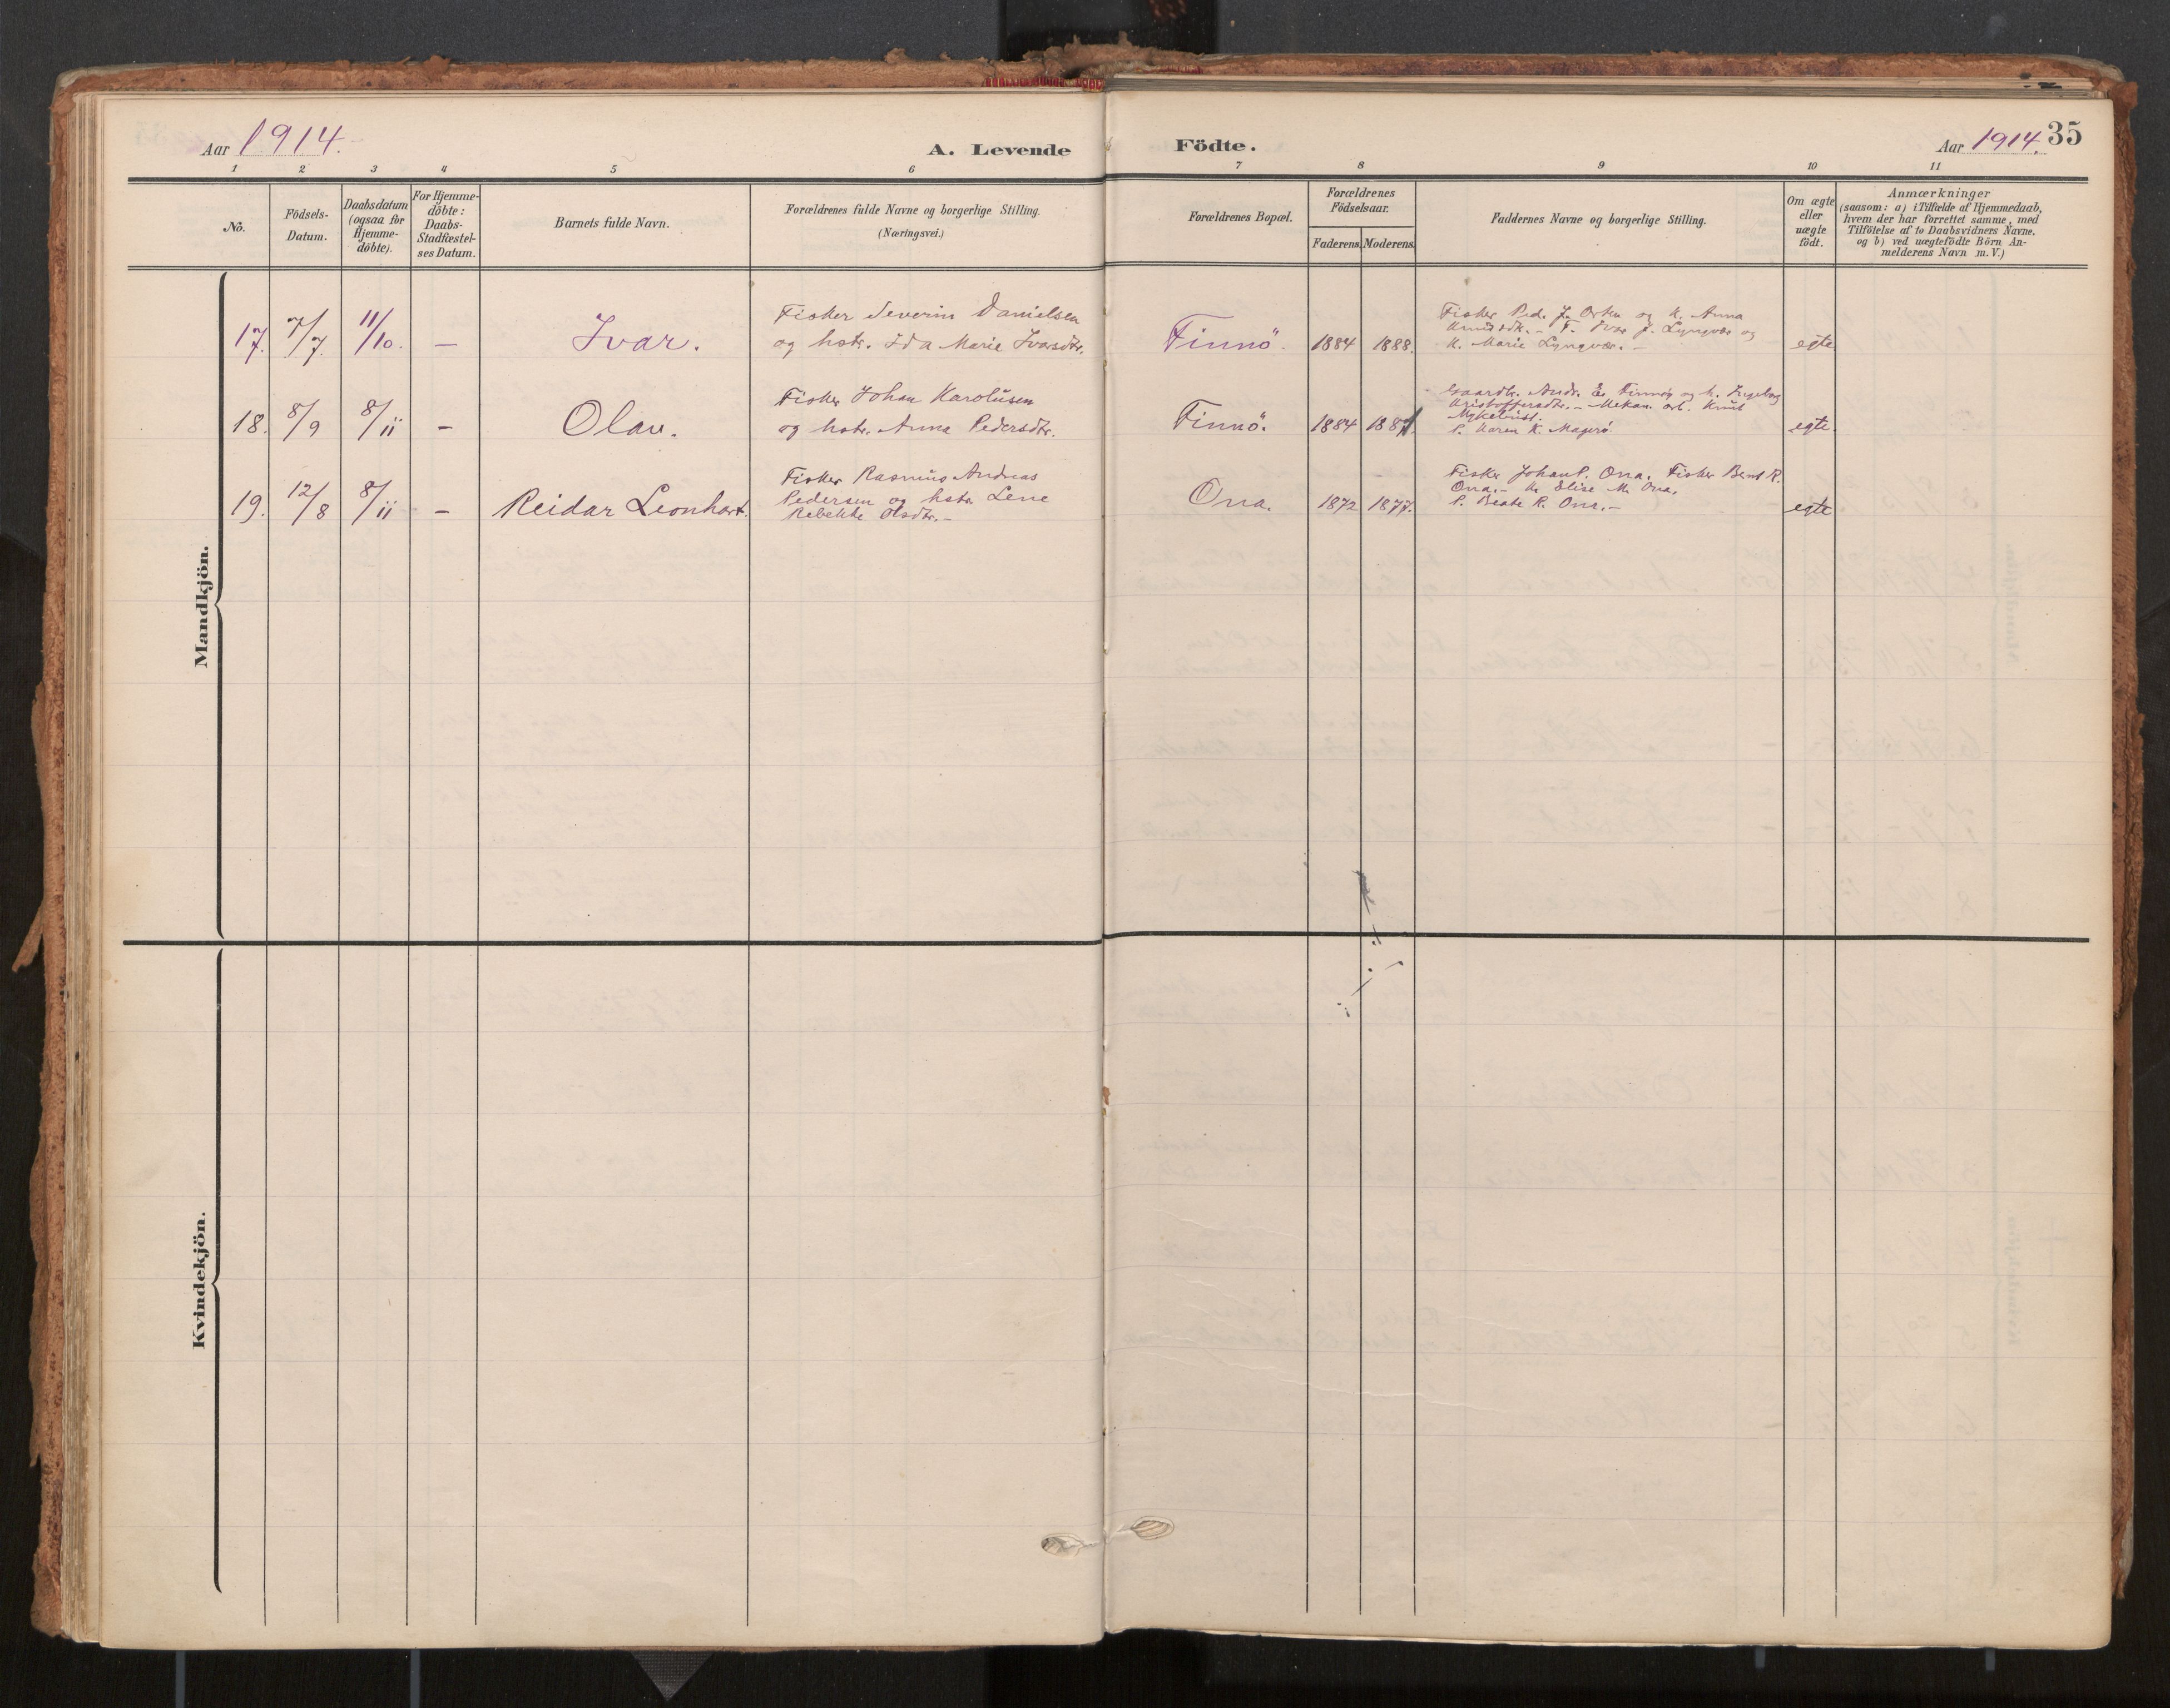 Aar 1914.
A. Levende
Födte.
Aar 1914. 35
1 2 3 4 5 6 7 8 9 10 11
No.
Födsels-
Datum.
Daabsdatum
(ogsaa for
Hjemme-
döbte).
For Hjemme-
döbte:
Daabs-
Stadfæstel-
ses Datum.
Barnets fulde Navn.
Forældrenes fulde Navne og borgerlige Stilling.
(Næringsvei.)
Forældrenes Bopæl.
Forældrenes
Födselsaar.
Faderens. Moderens.
Faddernes Navne og borgerlige Stilling.
Om ægte
eller
uægte
födt.
Anmærkninger
(saasom: a) i Tilfælde af Hjemmedaab,
hvem der har forrettet samme, med
Tilföielse af to Daabsvidners Navne,
og b) ved uægtefödte Börn An-
melderens Navn m. V.)
Mandkjön.
17. 7/7. 11/10. — Ivar.
Fisker Severin Danielsen
og hstr. Ida Marie Ivarsdtr.
Finnö. 1884 1888.
Fisker Ped. J. og K. Anna
Knudsdtr. - F. Ivar J. Lyngvær og
K. Marie Lyngvær. -
egte
18. 8/9 8/11 - Olav.
Fisker Johan Karolusen
og hstr. Anna Pedersdtr.
Finnö. 1884
Gaardbr. Andr. E. Finnöy og h. Ingeborg
Kristoffersdtr. - Mekan. arb. Knut
Myklebust.
P. Karen K. Magerö.
egte.
19. 12/8 8/11 - Reidar Leonhart.
Fisker Rasmus Andreas
Pedersen og hstr. Lene
Rebekke Olsdtr. -
Ona. 1872 1877.
Fisker Johan P. Ona. Fisker Bernt R.
Ona. - K. Elise M. Ona.
P. Beate R. Ona. -
egte
Kvindekjön.